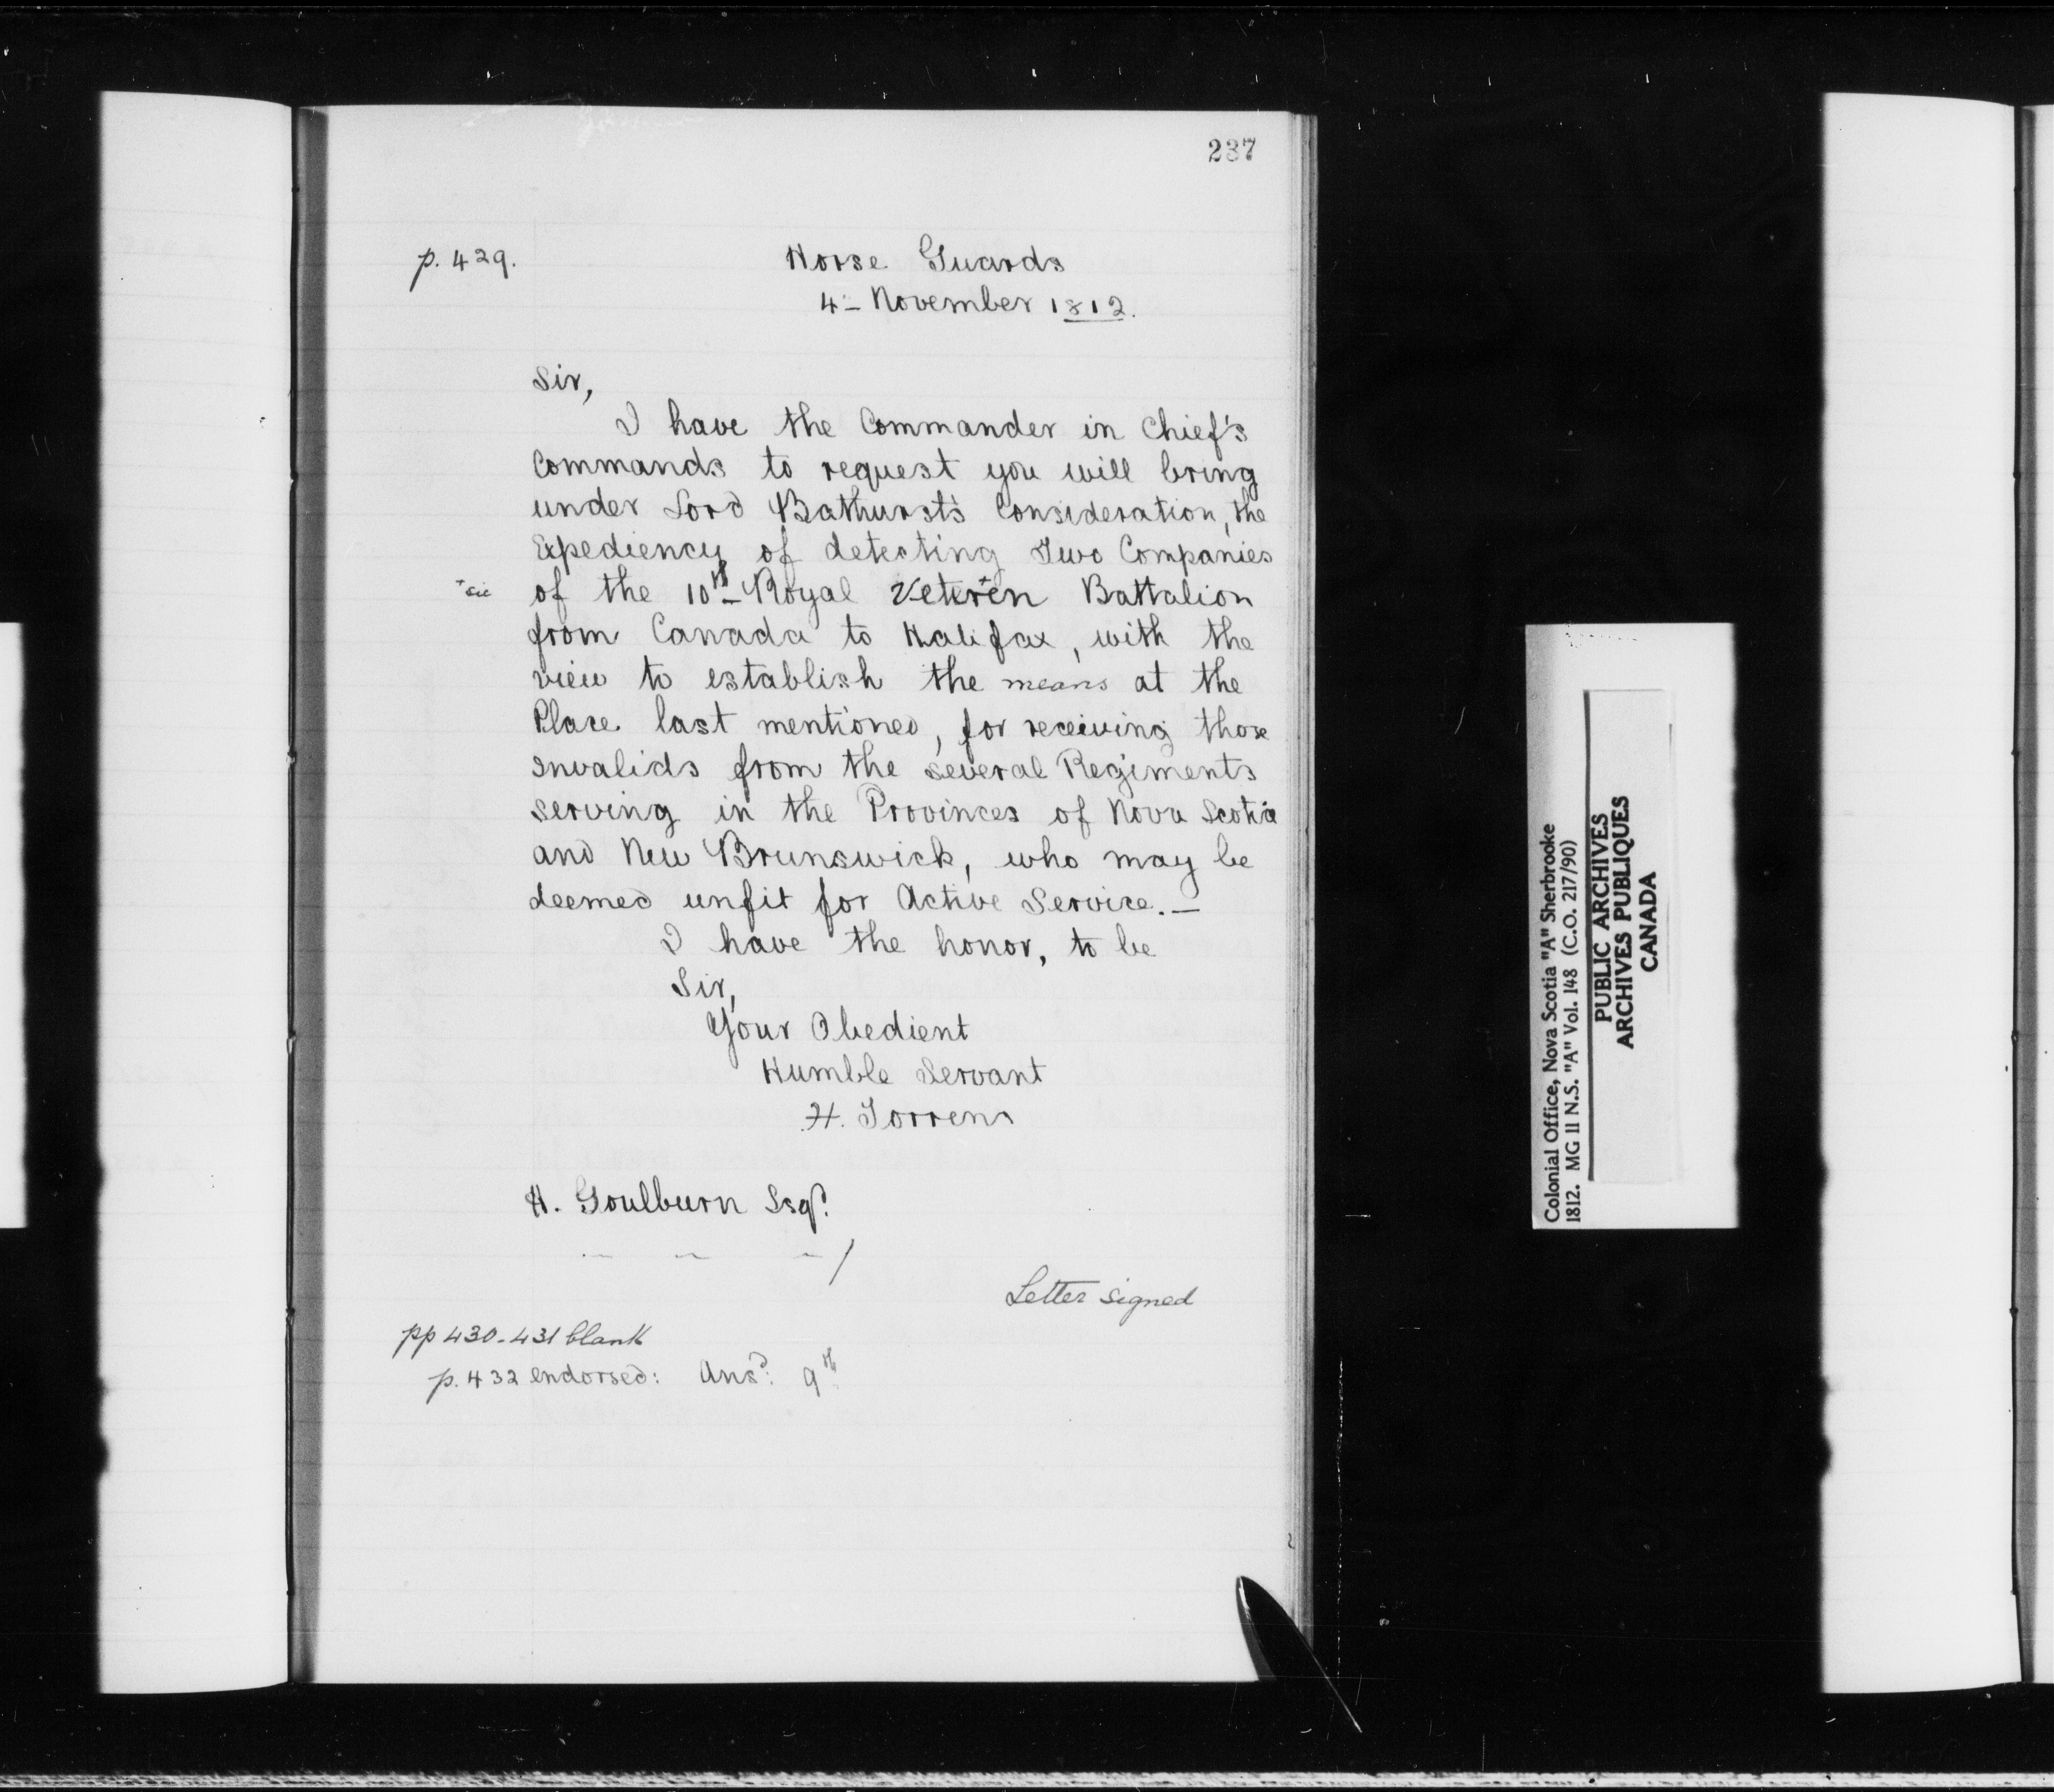 287
p. 429.
Horse Guards
4- November 1812.
Sir,
I have the Commander in Chief's
Commands to request you will bring
under Lord Bathurst's Consideration, the
Expediency of detecting Two Companies
+sic of the 10th Royal Veterĕn Battalion
from Canada to Halifax, with the
view to establish the means at the
Place last mentioned, for receiving those
Invalids from the several Regiments
serving in the Provinces of Nova Scotia
and New Brunswick, who may be
deemed unfit for Active Service.—
I have the honor, to be
Sir,
Your Obedient
Humble Servant
H. Torrens
H. Goulburn Esqr.
Letter signed
pp 430-431 blank
p. 432 endorsed: Ansd: 9th
Colonial Office, Nova Scotia "A" Sherbrooke
1812. MG 11 N.S. "A" Vol. 148 (C.O. 217/90)
PUBLIC ARCHIVES
ARCHIVES PUBLIQUES
CANADA